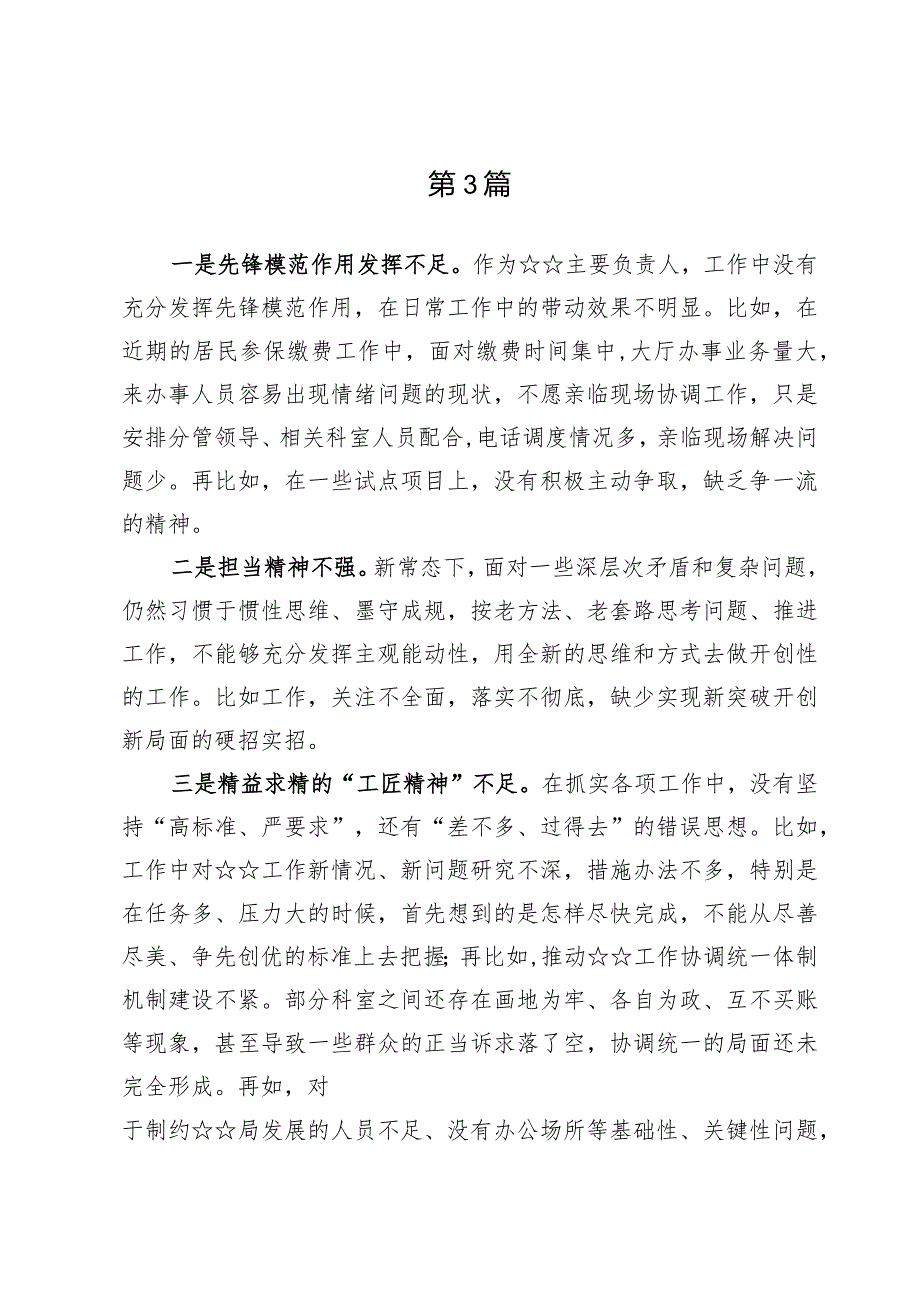 第3篇
一是先锋模范作用发挥不足。作为☆☆主要负责人，工作中没有
充分发挥先锋模范作用，在日常工作中的带动效果不明显。比如，在
近期的居民参保缴费工作中，面对缴费时间集中,大厅办事业务量大，
来办事人员容易出现情绪问题的现状，不愿亲临现场协调工作，只是
安排分管领导、相关科室人员配合,电话调度情况多，亲临现场解决问
题少。再比如，在一些试点项目上，没有积极主动争取，缺乏争一流
的精神。
二是担当精神不强。新常态下，面对一些深层次矛盾和复杂问题，
仍然习惯于惯性思维、墨守成规，按老方法、老套路思考问题、推进
工作，不能够充分发挥主观能动性，用全新的思维和方式去做开创性
的工作。比如工作，关注不全面，落实不彻底，缺少实现新突破开创
新局面的硬招实招。
三是精益求精的“工匠精神”不足。在抓实各项工作中，没有坚
持“高标准、严要求”，还有“差不多、过得去”的错误思想。比如，
工作中对☆☆工作新情况、新问题研究不深，措施办法不多，特别是
在任务多、压力大的时候，首先想到的是怎样尽快完成，不能从尽善
尽美、争先创优的标准上去把握；再比如,推动☆☆工作协调统一体制
机制建设不紧。部分科室之间还存在画地为牢、各自为政、互不买账
等现象，甚至导致一些群众的正当诉求落了空，协调统一的局面还未
完全形成。再如，对
于制约☆☆局发展的人员不足、没有办公场所等基础性、关键性问题，